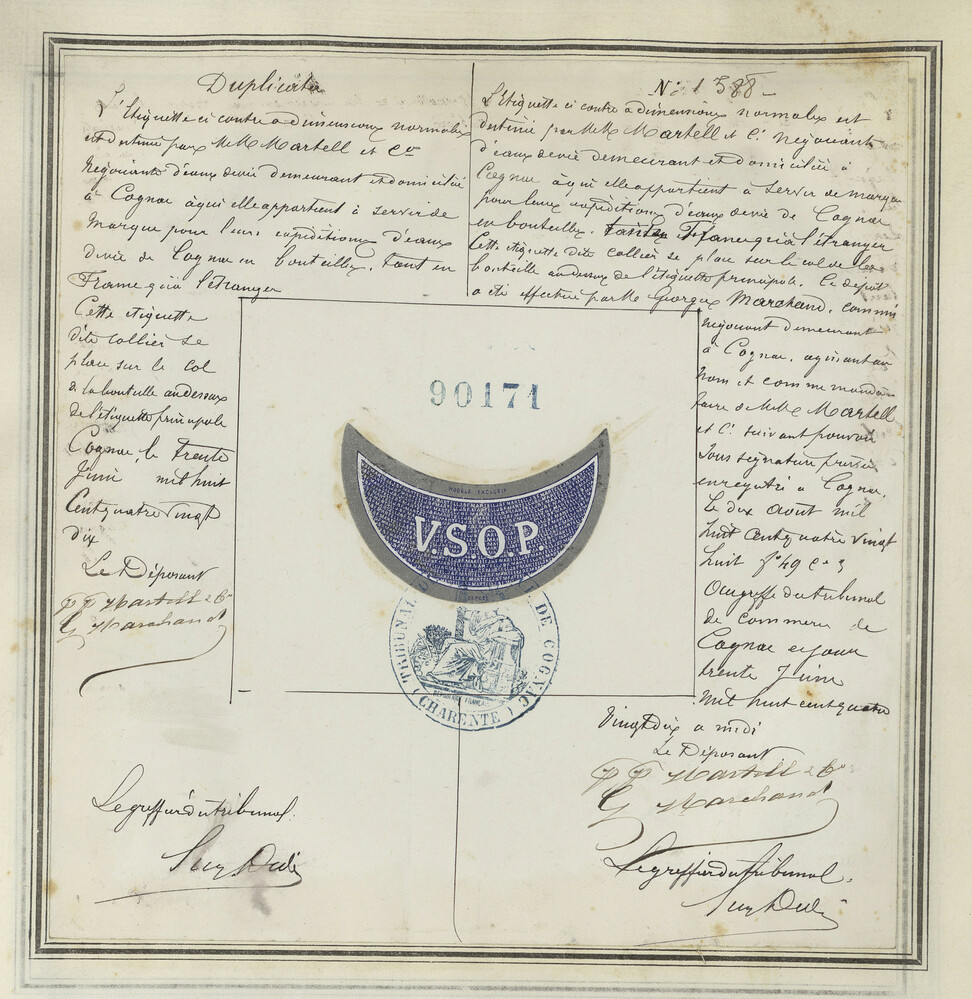 Duplicata
L'Etiquette ci contre a dimensions normales
est destinée par MM Martell et Cie
Négociants d'eaux de vie demeurant et domiciliés
à Cognac à qui elle appartient à servir de
Marque pour leurs expéditions d'eaux
de vie de Cognac en bouteilles, tant en
France qu'à l'étranger
Cette etiquette
dite collier se
place sur le col
de la bouteille au dessus
de l'étiquette principale
Cognac, le trente
Juin mil huit
Cent quatre vingt
dix
Le Déposant
PP Martell & Co
G Marchand
Le greffier du tribunal.
N: 1588
L'Etiquette ci contre a dimensions normales est
destinée par MM Martell et Cie Négociants
d'eaux de vie demeurant et domiciliés à
Cognac à qui elle appartient à servir de marque
pour leurs expéditions d'eaux de vie de Cognac
en bouteilles, tant en France qu'à l'étranger
Cette etiquette dite collier se place sur le col de la
bouteille au dessus de l'étiquette principale. Ce dépôt
a été effectué par Mr Georges Marchand, commis
négociant demeurant
à Cognac, agissant au
nom et comme manda-
taire de MM Martell
et Cie suivant pouvoir
sous signature privée
enregistré à Cognac,
le dix Aout mil
huit cent quatre vingt
huit fo 49 c 3
Au greffe du tribunal
de commerce de
Cognac ce jour
trente Juin
mil huit cent quatre
Vingt dix a midi
Le Déposant
PP Martell & Co
G Marchand
Le greffier du tribunal.
90171
MODÈLE EXCLUSIF
V.S.O.P.
TRIBUNAL DE COGNAC
(CHARENTE)